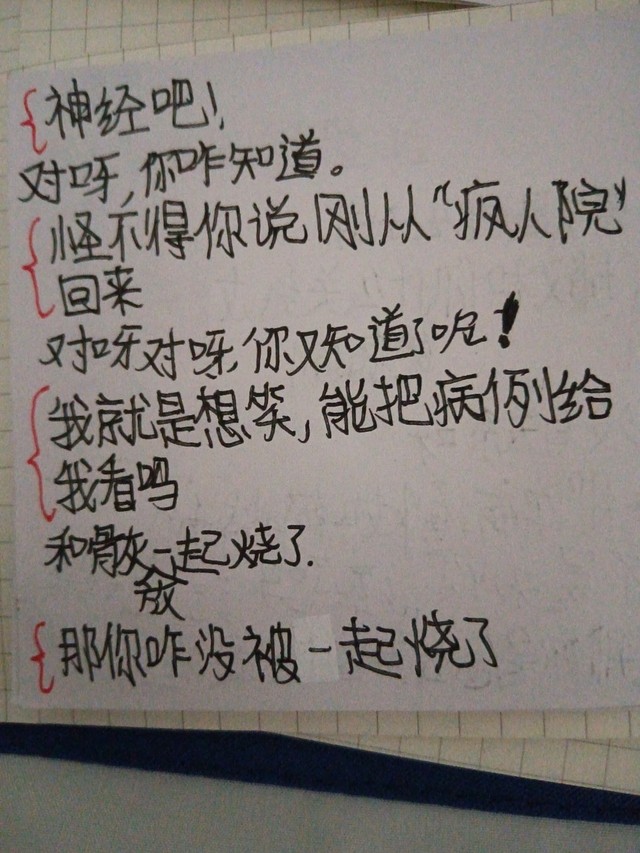 神经吧！
对呀，你咋知道。
怪不得你说刚从“疯人院”
回来
对呀对呀，你又知道了呢！
我就是想笑，能把病例给
我看吗
和骨灰放一起烧了.
那你咋没被一起烧了